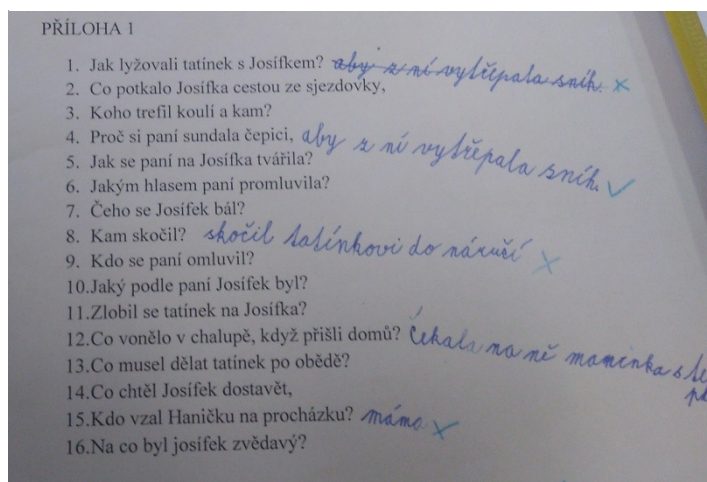 PŘÍLOHA 1
1. Jak lyžovali tatínek s Josífkem? aby z ní vytřepala sníh.
2. Co potkalo Josífka cestou ze sjezdovky,
3. Koho trefil koulí a kam?
4. Proč si paní sundala čepici, aby z ní vytřepala sníh.
5. Jak se paní na Josífka tvářila?
6. Jakým hlasem paní promluvila?
7. Čeho se Josífek bál?
8. Kam skočil? skočil tatínkovi do náručí
9. Kdo se paní omluvil?
10.Jaký podle paní Josífek byl?
11.Zlobil se tatínek na Josífka?
12.Co vonělo v chalupě, když přišli domů? Čekala na ně maminka s
13.Co musel dělat tatínek po obědě?
14.Co chtěl Josífek dostavět,
15.Kdo vzal Haničku na procházku? máma
16.Na co byl josífek zvědavý?